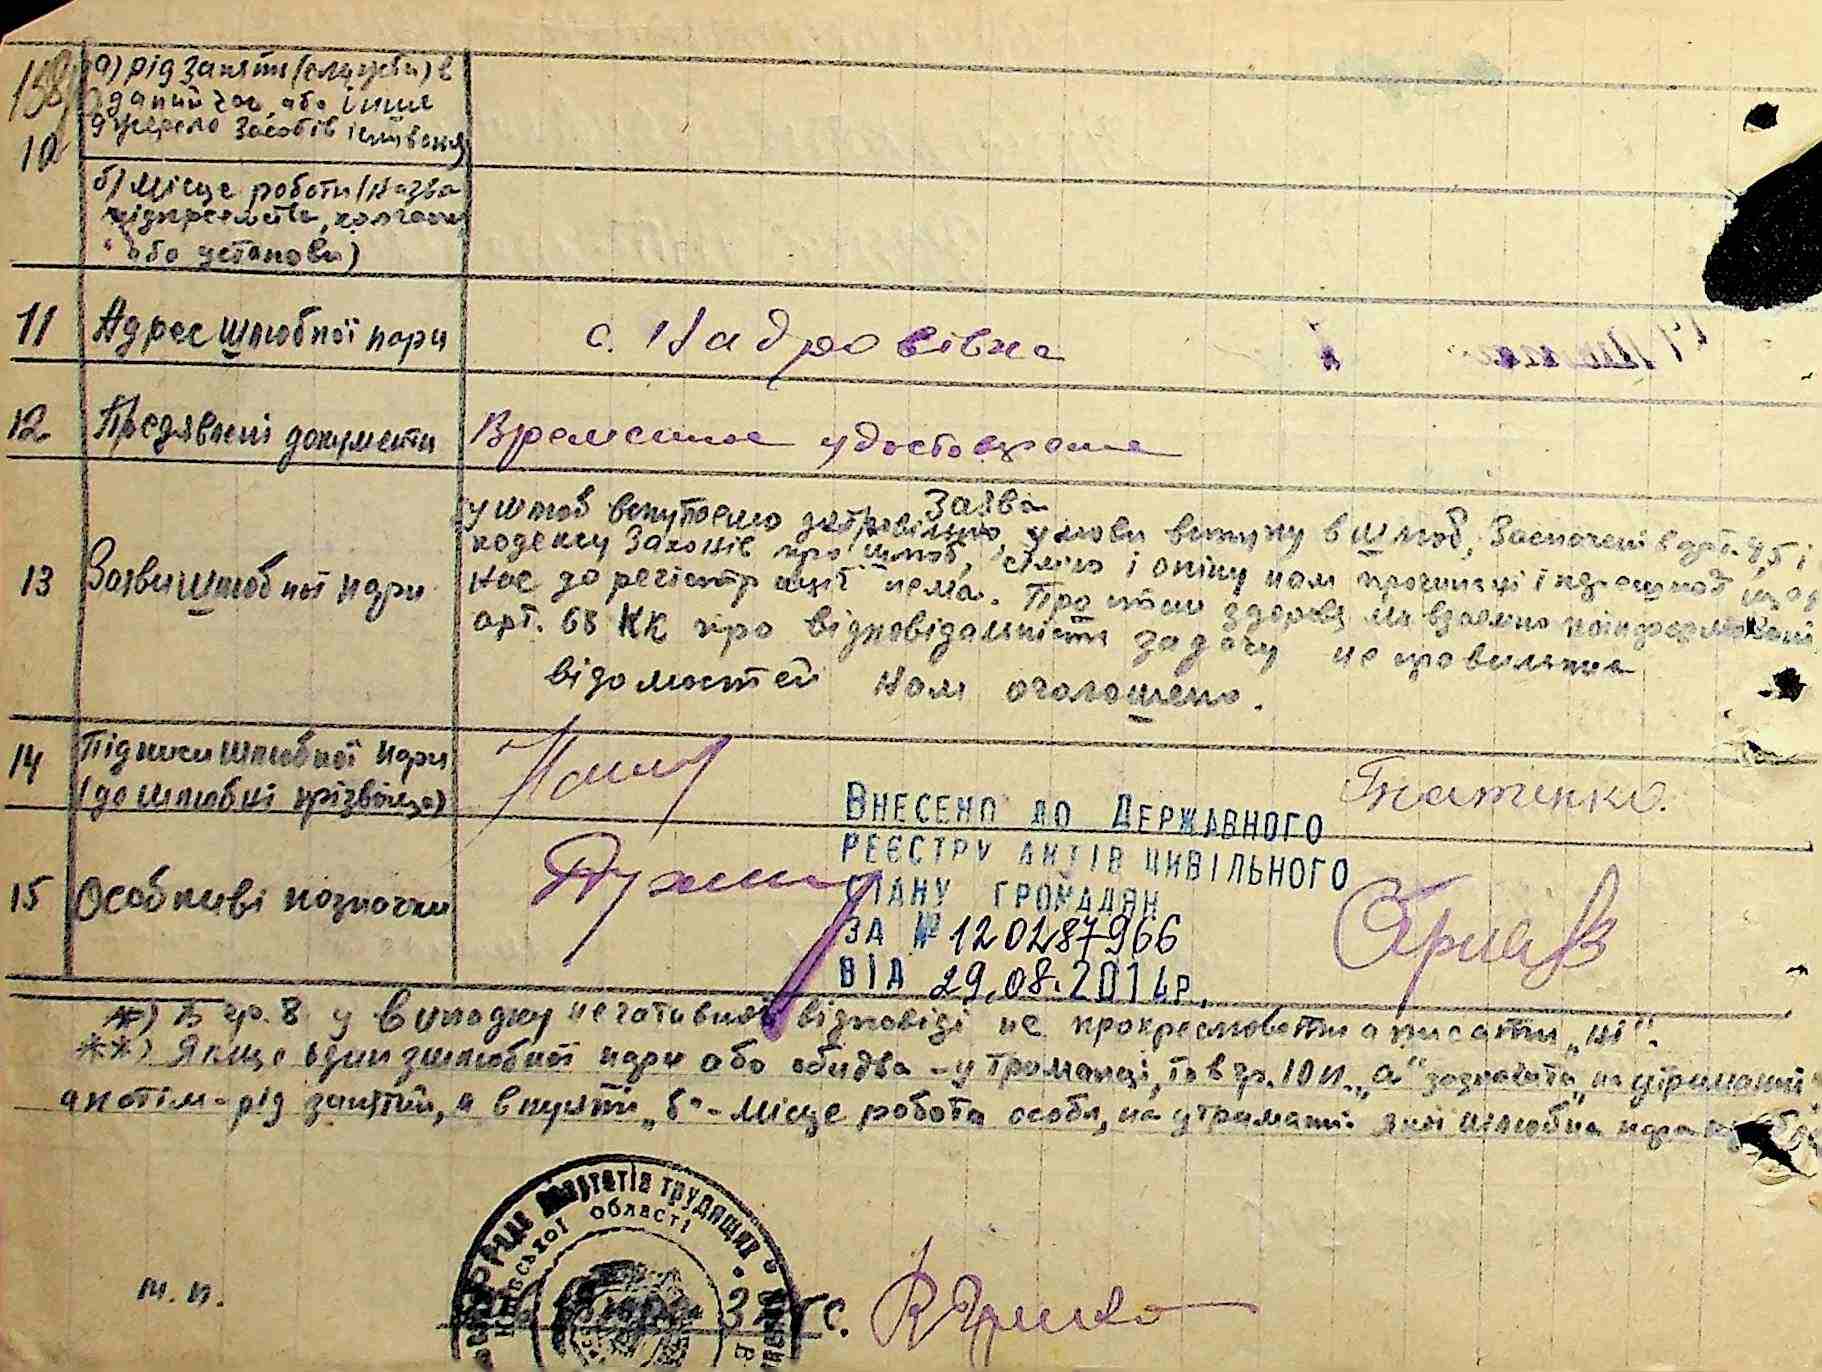 10 а) рід заняття (служби) в
даний час або інше
джерело засобів існування)
б) Місце роботи (назва
підприємства,
або установи)
11 Адрес шлюбної пари с. Надровівка
12 Предявлені документи Временное удостоверение
13 Заяви шлюбної пари
Заява
у шлюб вступаємо умови вступу в шлюб, Зазначені в арт. 4, 5 і
кодексу Законів про шлюб, сімю і опіку нам і перешкод
нас до регістрації нема. Про стан здоровя ми взаємно поінформовані
арт. 68 КК про відповідальність за дачу неправильних
відомостей нам оголошено.
14 Підписи шлюбної пари
(до шлюбні прізвища) Гнатенко.
15 Особливі позначки
Внесено до Державного
реєстру актів цивільного
стану громадян
за № 12 0287966
від 29.08.2014р.
*) В гр. 8 у випадку негативної відповіді не прокреслювати а писати „ні".
**) Якщо один з шлюбної пари або обидва - утриманці, то в гр. 10 п. „а" зазначати на утриманні
а потім - рід занять, а в пункті „б" - місце роботи особи, на утриманні якої шлюбна пара
депутатів трудящих
області
т. п.
ЗАГС.